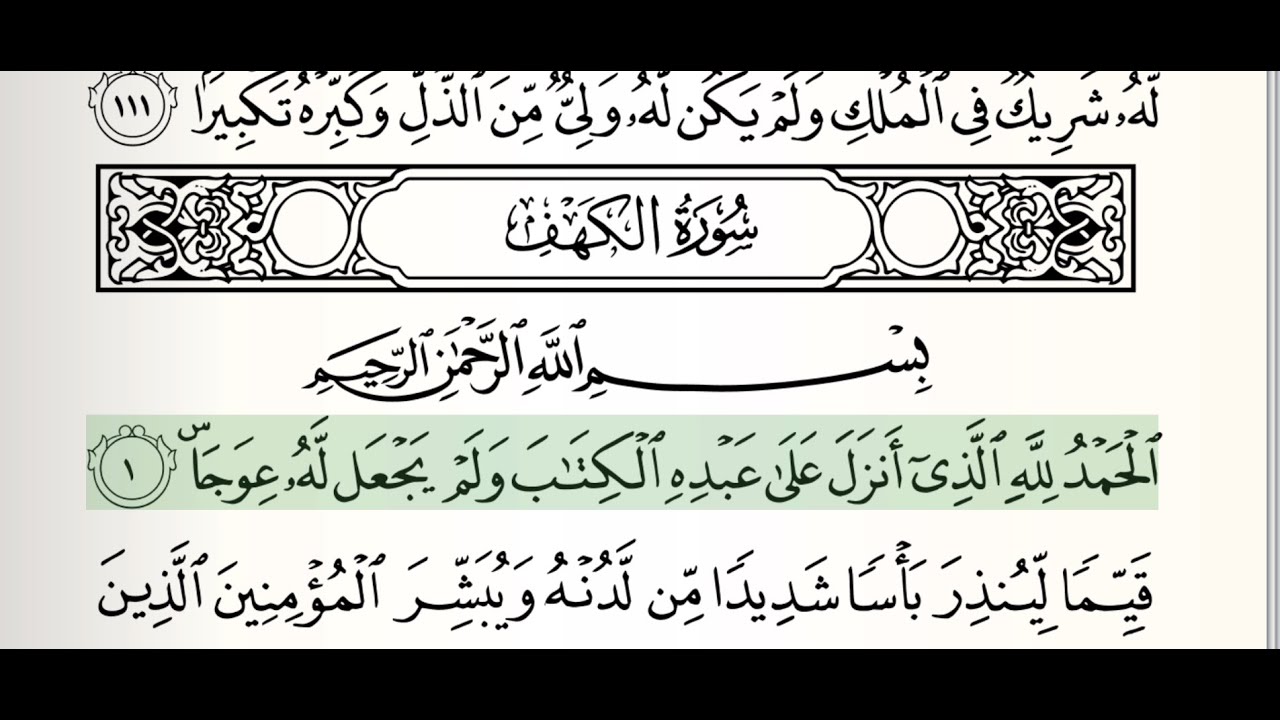 لَّهُۥ شَرِيكٌ فِى ٱلْمُلْكِ وَلَمْ يَكُن لَّهُۥ وَلِىٌّ مِّنَ ٱلذُّلِّ وَكَبِّرْهُ تَكْبِيرًۢا ١١١
سُورَةُ الكَهْفِ
بِسْمِ ٱللَّهِ ٱلرَّحْمَٰنِ ٱلرَّحِيمِ
ٱلْحَمْدُ لِلَّهِ ٱلَّذِىٓ أَنزَلَ عَلَىٰ عَبْدِهِ ٱلْكِتَٰبَ وَلَمْ يَجْعَل لَّهُۥ عِوَجَاۜ ١
قَيِّمًا لِّيُنذِرَ بَأْسًا شَدِيدًا مِّن لَّدُنْهُ وَيُبَشِّرَ ٱلْمُؤْمِنِينَ ٱلَّذِينَ